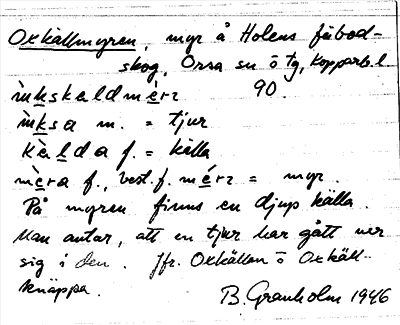 Oxkällmyren, myr å Holens fäbod-
skog, Orsa sn ö tg, Kopparb. l
ùkskeldmèrz 90.
ùksa m. = tjur
kèlda f. = källa
mèra f., best. f. mérz = myr.
På myren finns en djup källa.
Man antar, att en tjur har gått ner
sig i den. Jfr. Oxkällan o Oxkäll-
knäppa.
B. Granholm 1946